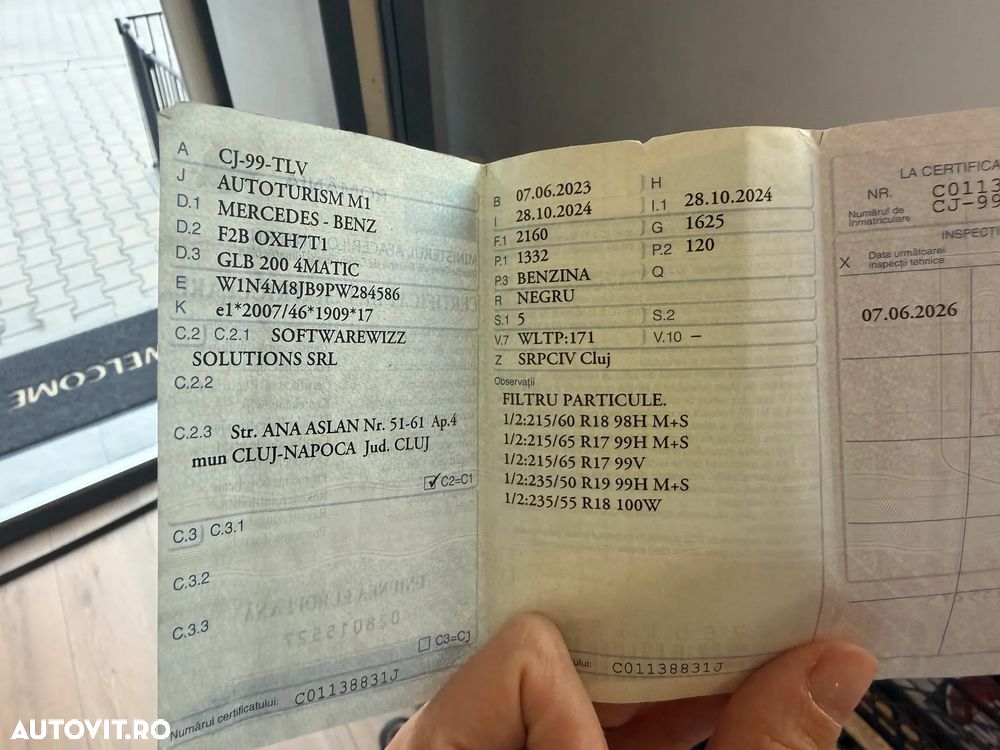 A CJ-99-TLV
J AUTOTURISM M1
D.1 MERCEDES - BENZ
D.2 F2B OXH7T1
D.3 GLB 200 4MATIC
E W1N4M8JB9PW284586
K e1*2007/46*1909*17
C.2 C.2.1 SOFTWAREWIZZ
SOLUTIONS SRL
C.2.2
C.2.3 Str. ANA ASLAN Nr. 51-61 Ap.4
mun CLUJ-NAPOCA Jud. CLUJ
C2=C1
C.3 C.3.1
C.3.2
C.3.3
C3=C1
Numărul certificatului: C01138831J
B 07.06.2023 H
I 28.10.2024 I.1 28.10.2024
F.1 2160 G 1625
P.1 1332 P.2 120
P.3 BENZINA Q
R NEGRU
S.1 5 S.2
V.7 WLTP:171 V.10 –
Z SRPCIV Cluj
Observații
FILTRU PARTICULE.
1/2:215/60 R18 98H M+S
1/2:215/65 R17 99H M+S
1/2:215/65 R17 99V
1/2:235/50 R19 99H M+S
1/2:235/55 R18 100W
C01138831J
LA CERTIFICA
NR. C0113
Numărul de CJ-99
înmatriculare
INSPECȚI
X Data următoarei
inspecții tehnice
07.06.2026
WELCOME
UNIUNEA EUROPEANĂ
AUTOVIT.RO